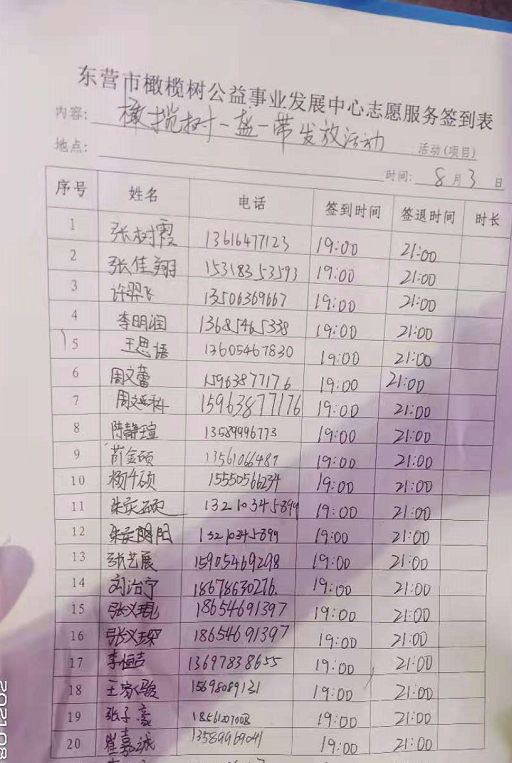 东营市橄榄树公益事业发展中心志愿服务签到表
内容: 橄榄树一盔一带发放活动 活动(项目)
地点: 时间: 8月3日
序号 姓名 电话 签到时间 签退时间 时长
1 张树霞 13616477123 19:00 21:00
2 张佳翔 15318353593 19:00 21:00
3 许羿飞 13506369667 19:00 21:00
4 李明润 13685465338 19:00 21:00
5 王思语 13605467830 19:00 21:00
6 周文蕾 15963877176 19:00 21:00
7 周文 15963877176 19:00 21:00
8 陈静瑄 13589996773 19:00 21:00
9 金硕 13561066487 19:00 21:00
10 杨硕 15550566234 19:00 21:00
11 硕 13210345899 19:00 21:00
12 阳 13210345899 19:00 21:00
13 张艺展 15905469298 19:00 21:00
14 刘治宁 18678630276 19:00 21:00
15 张义琨 18654691397 19:00 21:00
16 张义琛 18654691397 19:00 21:00
17 李恒吉 13697838655 19:00 21:00
18 王家骏 19:00 21:00
19 张子豪 19:00 21:00
20 崔嘉诚 13589969041 19:00 21:00
2021.08